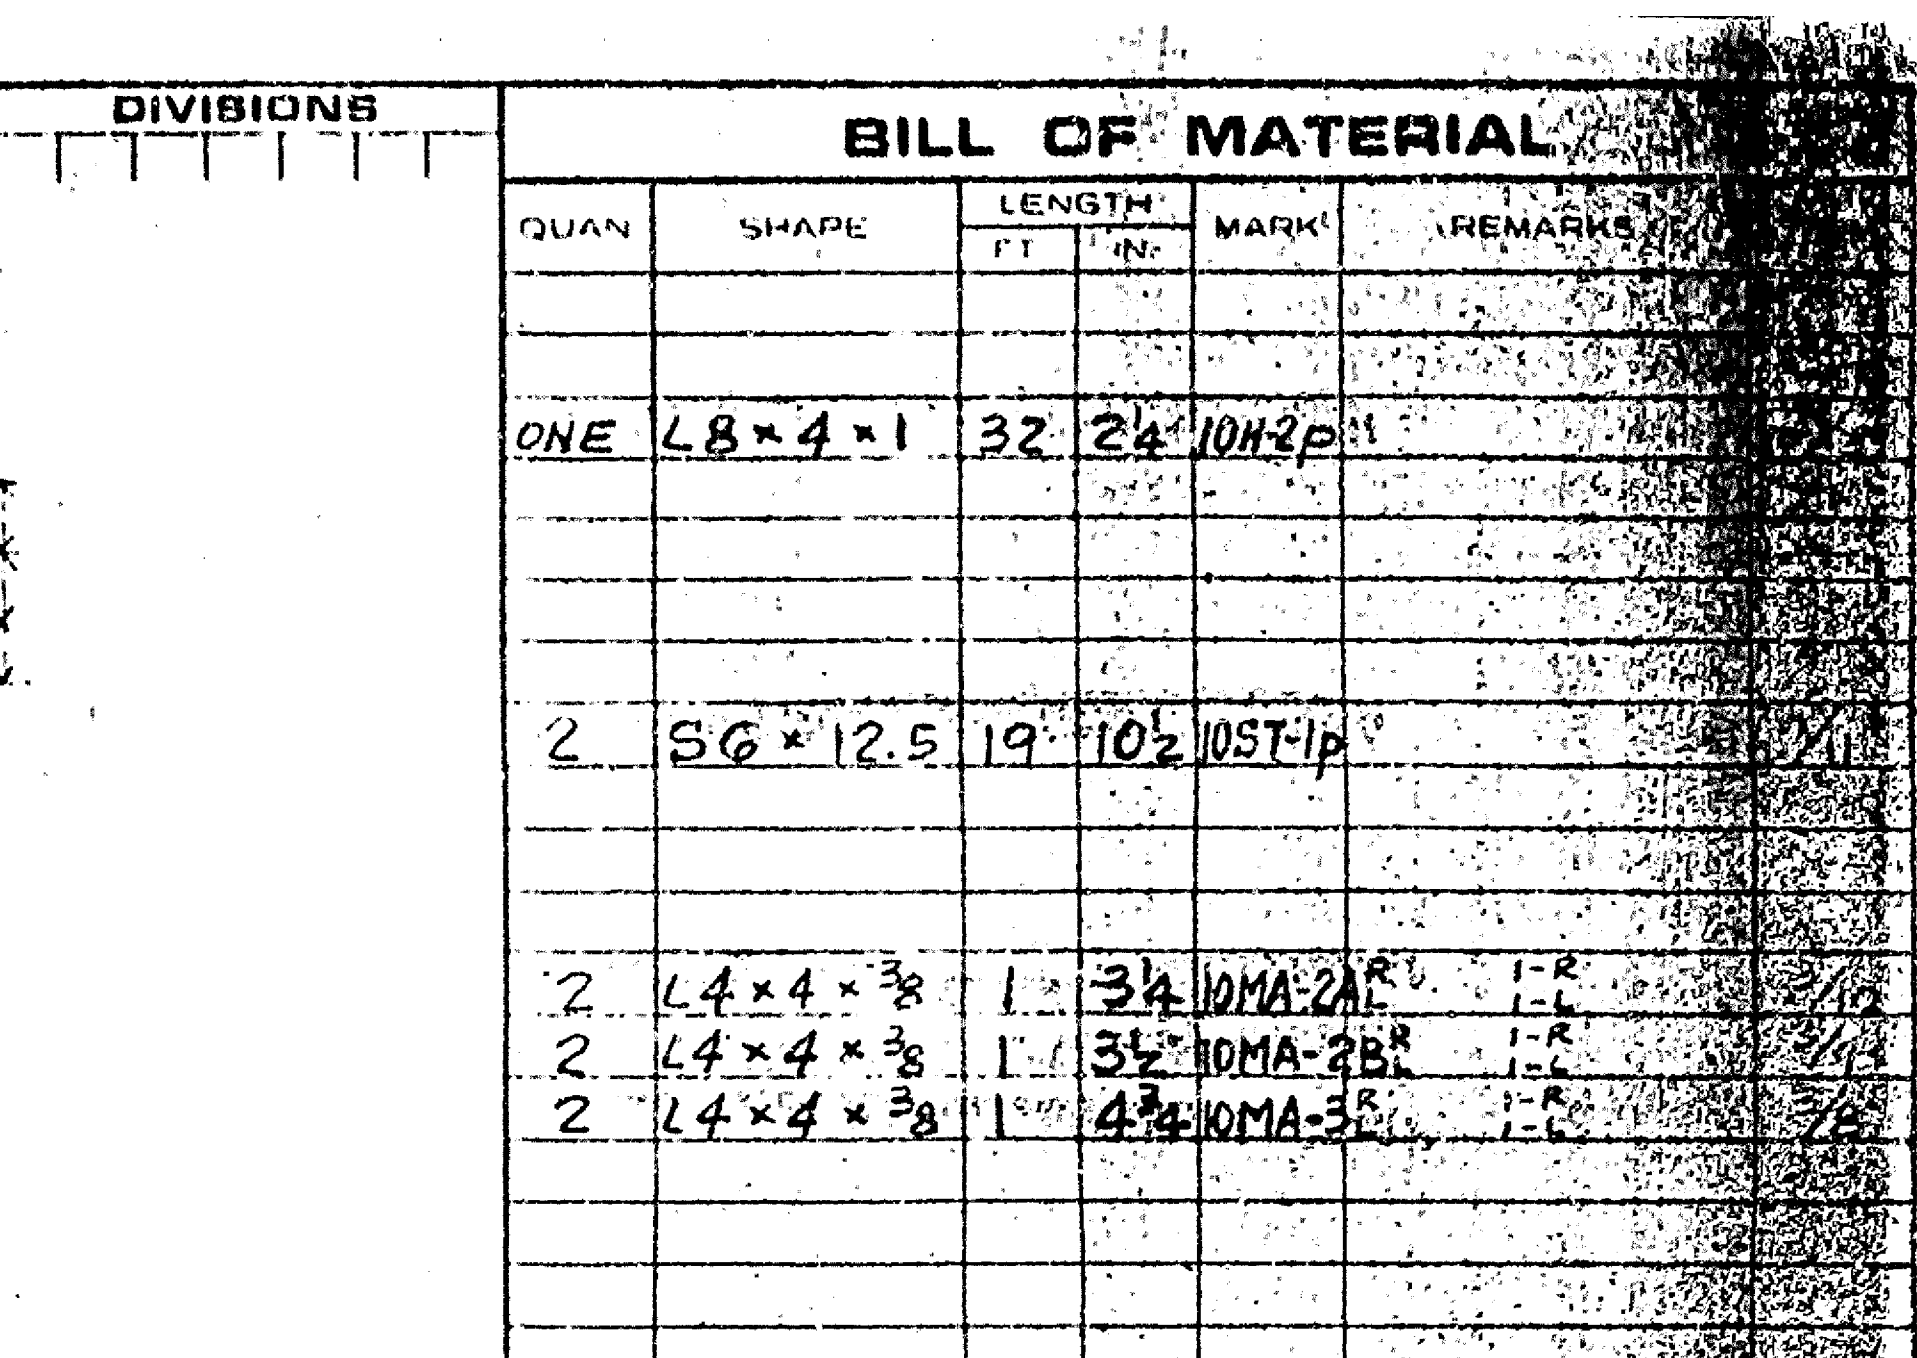 DIVISIONS
BILL OF MATERIAL
QUAN SHAPE LENGTH MARK REMARKS
FT IN.
ONE L8 × 4 × 1 32 2 1/4 10H-2p
2 S6 × 12.5 19 10 1/2 10ST-1p
2 L4 × 4 × 3/8 1 3 1/4 10MA-2A R L 1-R 1-L
2 L4 × 4 × 3/8 1 3 1/2 10MA-2B R L 1-R 1-L
2 L4 × 4 × 3/8 1 4 3/4 10MA-3 R L 1-R 1-L